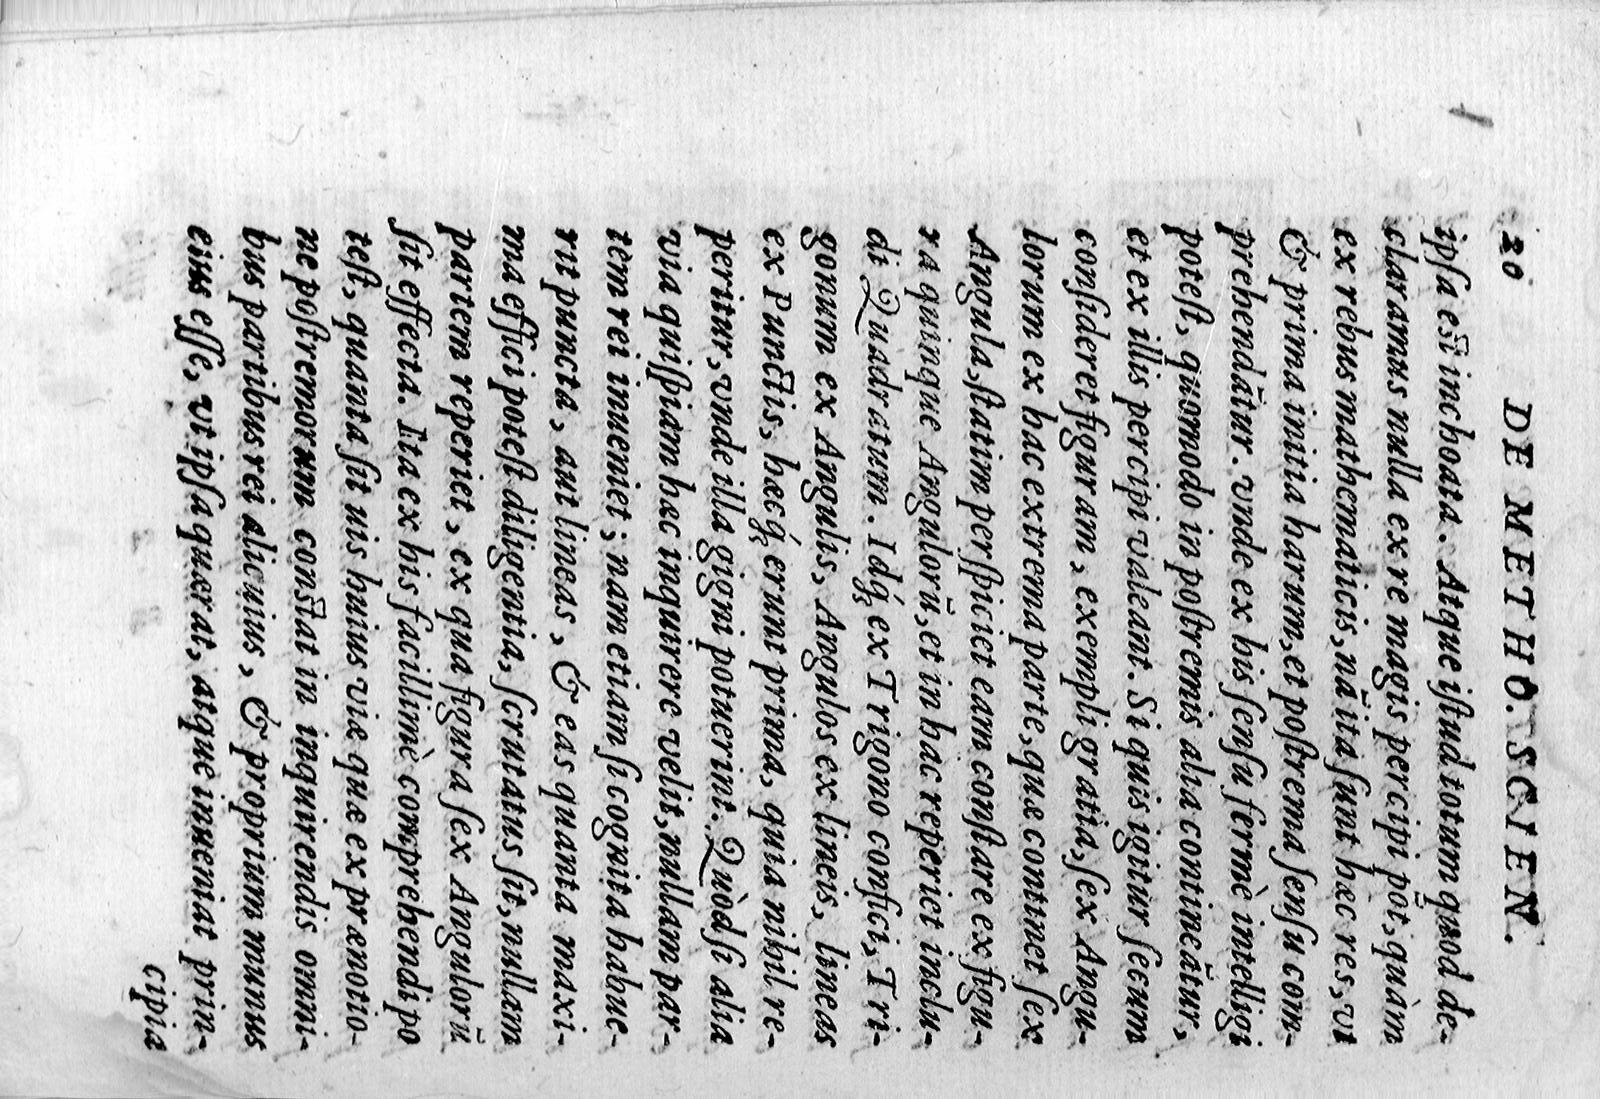 20 DE METHO. SCIEN.
ipſa eſt inchoata. Atque iſtud totum quod de-
claramus nulla ex re magis percipi põt, quàm
ex rebus mathematicis, nã ita ſunt hæc res, vt
& prima initia harum, et poſtrema ſenſu com-
prehendãtur. vnde ex his ſenſu fermè intelligi
poteſt, quomodo in poſtremis alia contineãtur,
et ex illis percipi valeant. Si quis igitur ſecum
conſideret figuram, exempli gratia, ſex Angu-
lorum ex hac extrema parte, quæ continet ſex
Angula, ſtatim perſpiciet eam conſtare ex figu-
ra quinque Angulorũ, et in hac reperiet inclu-
di Quadratum. Idq́; ex Trigono confici, Tri-
gonum ex Angulis, Angulos ex lineis, lineas
ex Punctis, hæcq́; erunt prima, quia nihil re-
peritur, vnde illa gigni potuerint. Quòd ſi alia
via quiſpiam hæc inquirere velit, nullam par-
tèm rei inueniet; nam etiam ſi cognita habue-
rit puncta, aut lineas, & eas quanta maxi-
ma effici poteſt diligentia, ſcrutatus ſit, nullam
partem reperiet, ex qua figura ſex Angulorũ
ſit effecta. Ita ex his facillimè comprehendi po
teſt, quanta ſit uis huius viæ quæ ex prænotio-
ne poſtremorum conſtat in inquirendis omni-
bus partibus rei alicuius, & proprium munus
eius eſſe, vt ipſa quærat, atque inueniat prin-
cipia